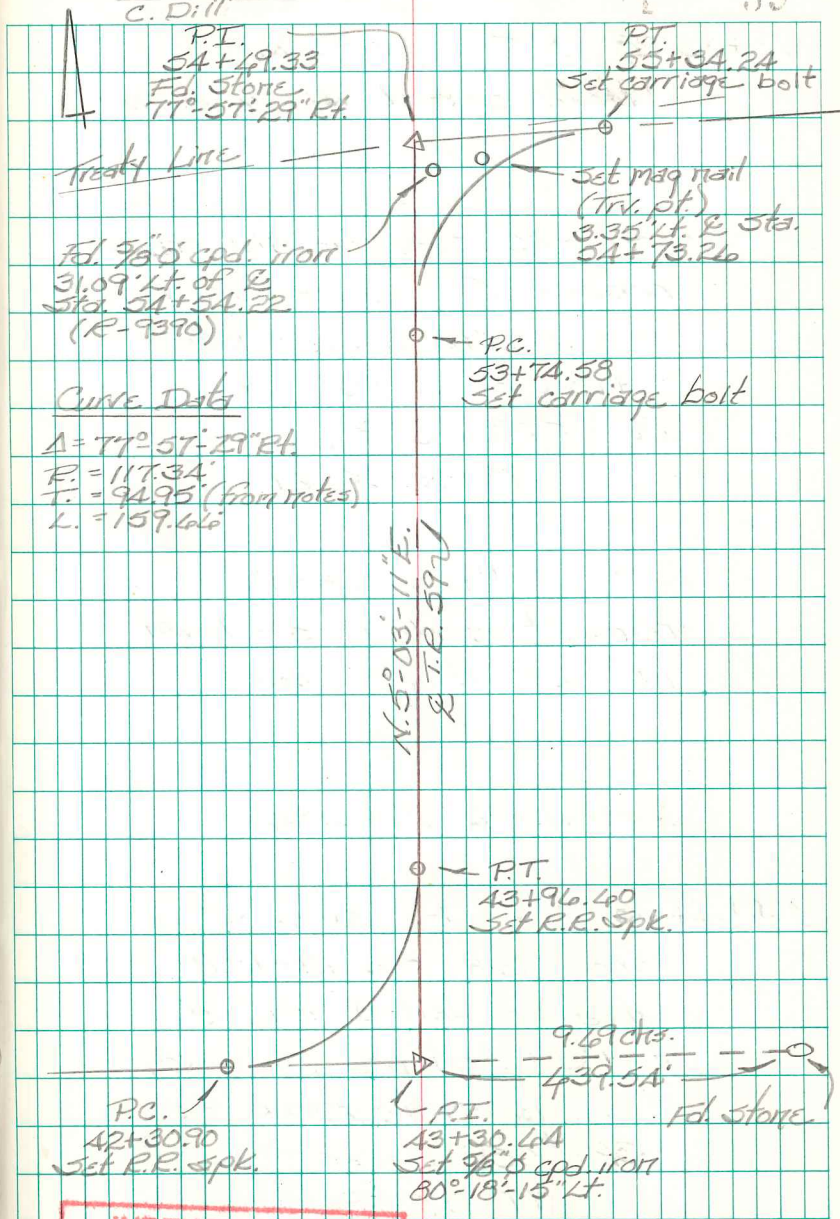 C. Dill
P.I.
54+69.53
Fd. Stone
77°-57'-29" Rt.
P.T.
55+34.24
Set carriage bolt
Treaty Line
Set mag nail
(Trv. pt.)
3.35' Lt. ℄ Sta.
54+73.26
Fd. 5/8" ø cpd. iron
31.09' Lt. of ℄
Sta. 54+54.22
(R-9390)
P.C.
53+74.58
Set carriage bolt
Curve Data
Δ = 77°-57'-29" Rt.
R. = 117.34'
T. = 94.95' (from notes)
L. = 159.66'
N. 5°-03'-11" E.
℄ T.R. 592
P.T.
43+96.60
Set R.R. Spk.
9.69 chs.
639.54'
Fd. Stone
P.C.
42+30.90
Set R.R. Spk.
P.I.
43+30.64
Set 5/8" ø cpd. iron
80°-18'-15" Lt.